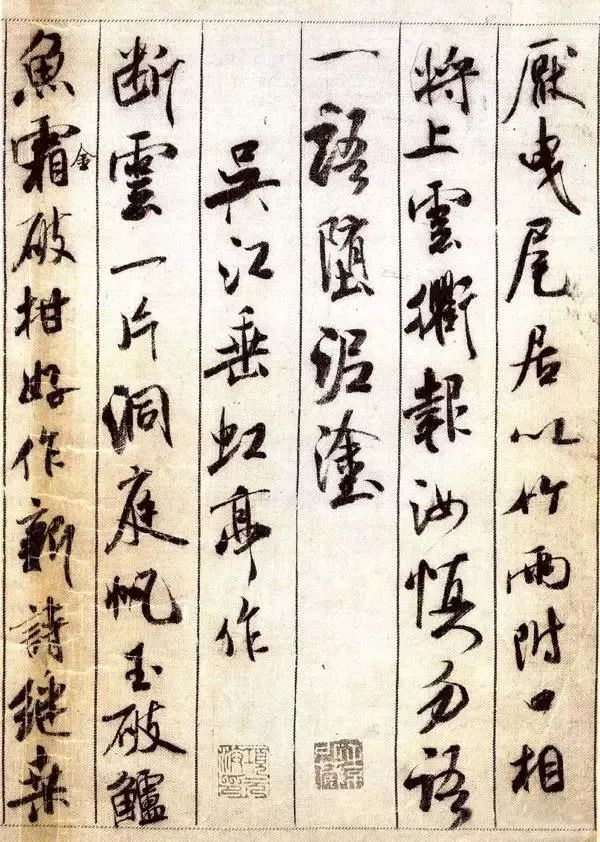 厭曳尾居以竹兩附口相
將上雲衢報汝慎勿語
一語墮泥塗
吳江垂虹亭作
断雲一片洞庭帆玉破鱸
魚霜金破柑好作新詩継桒